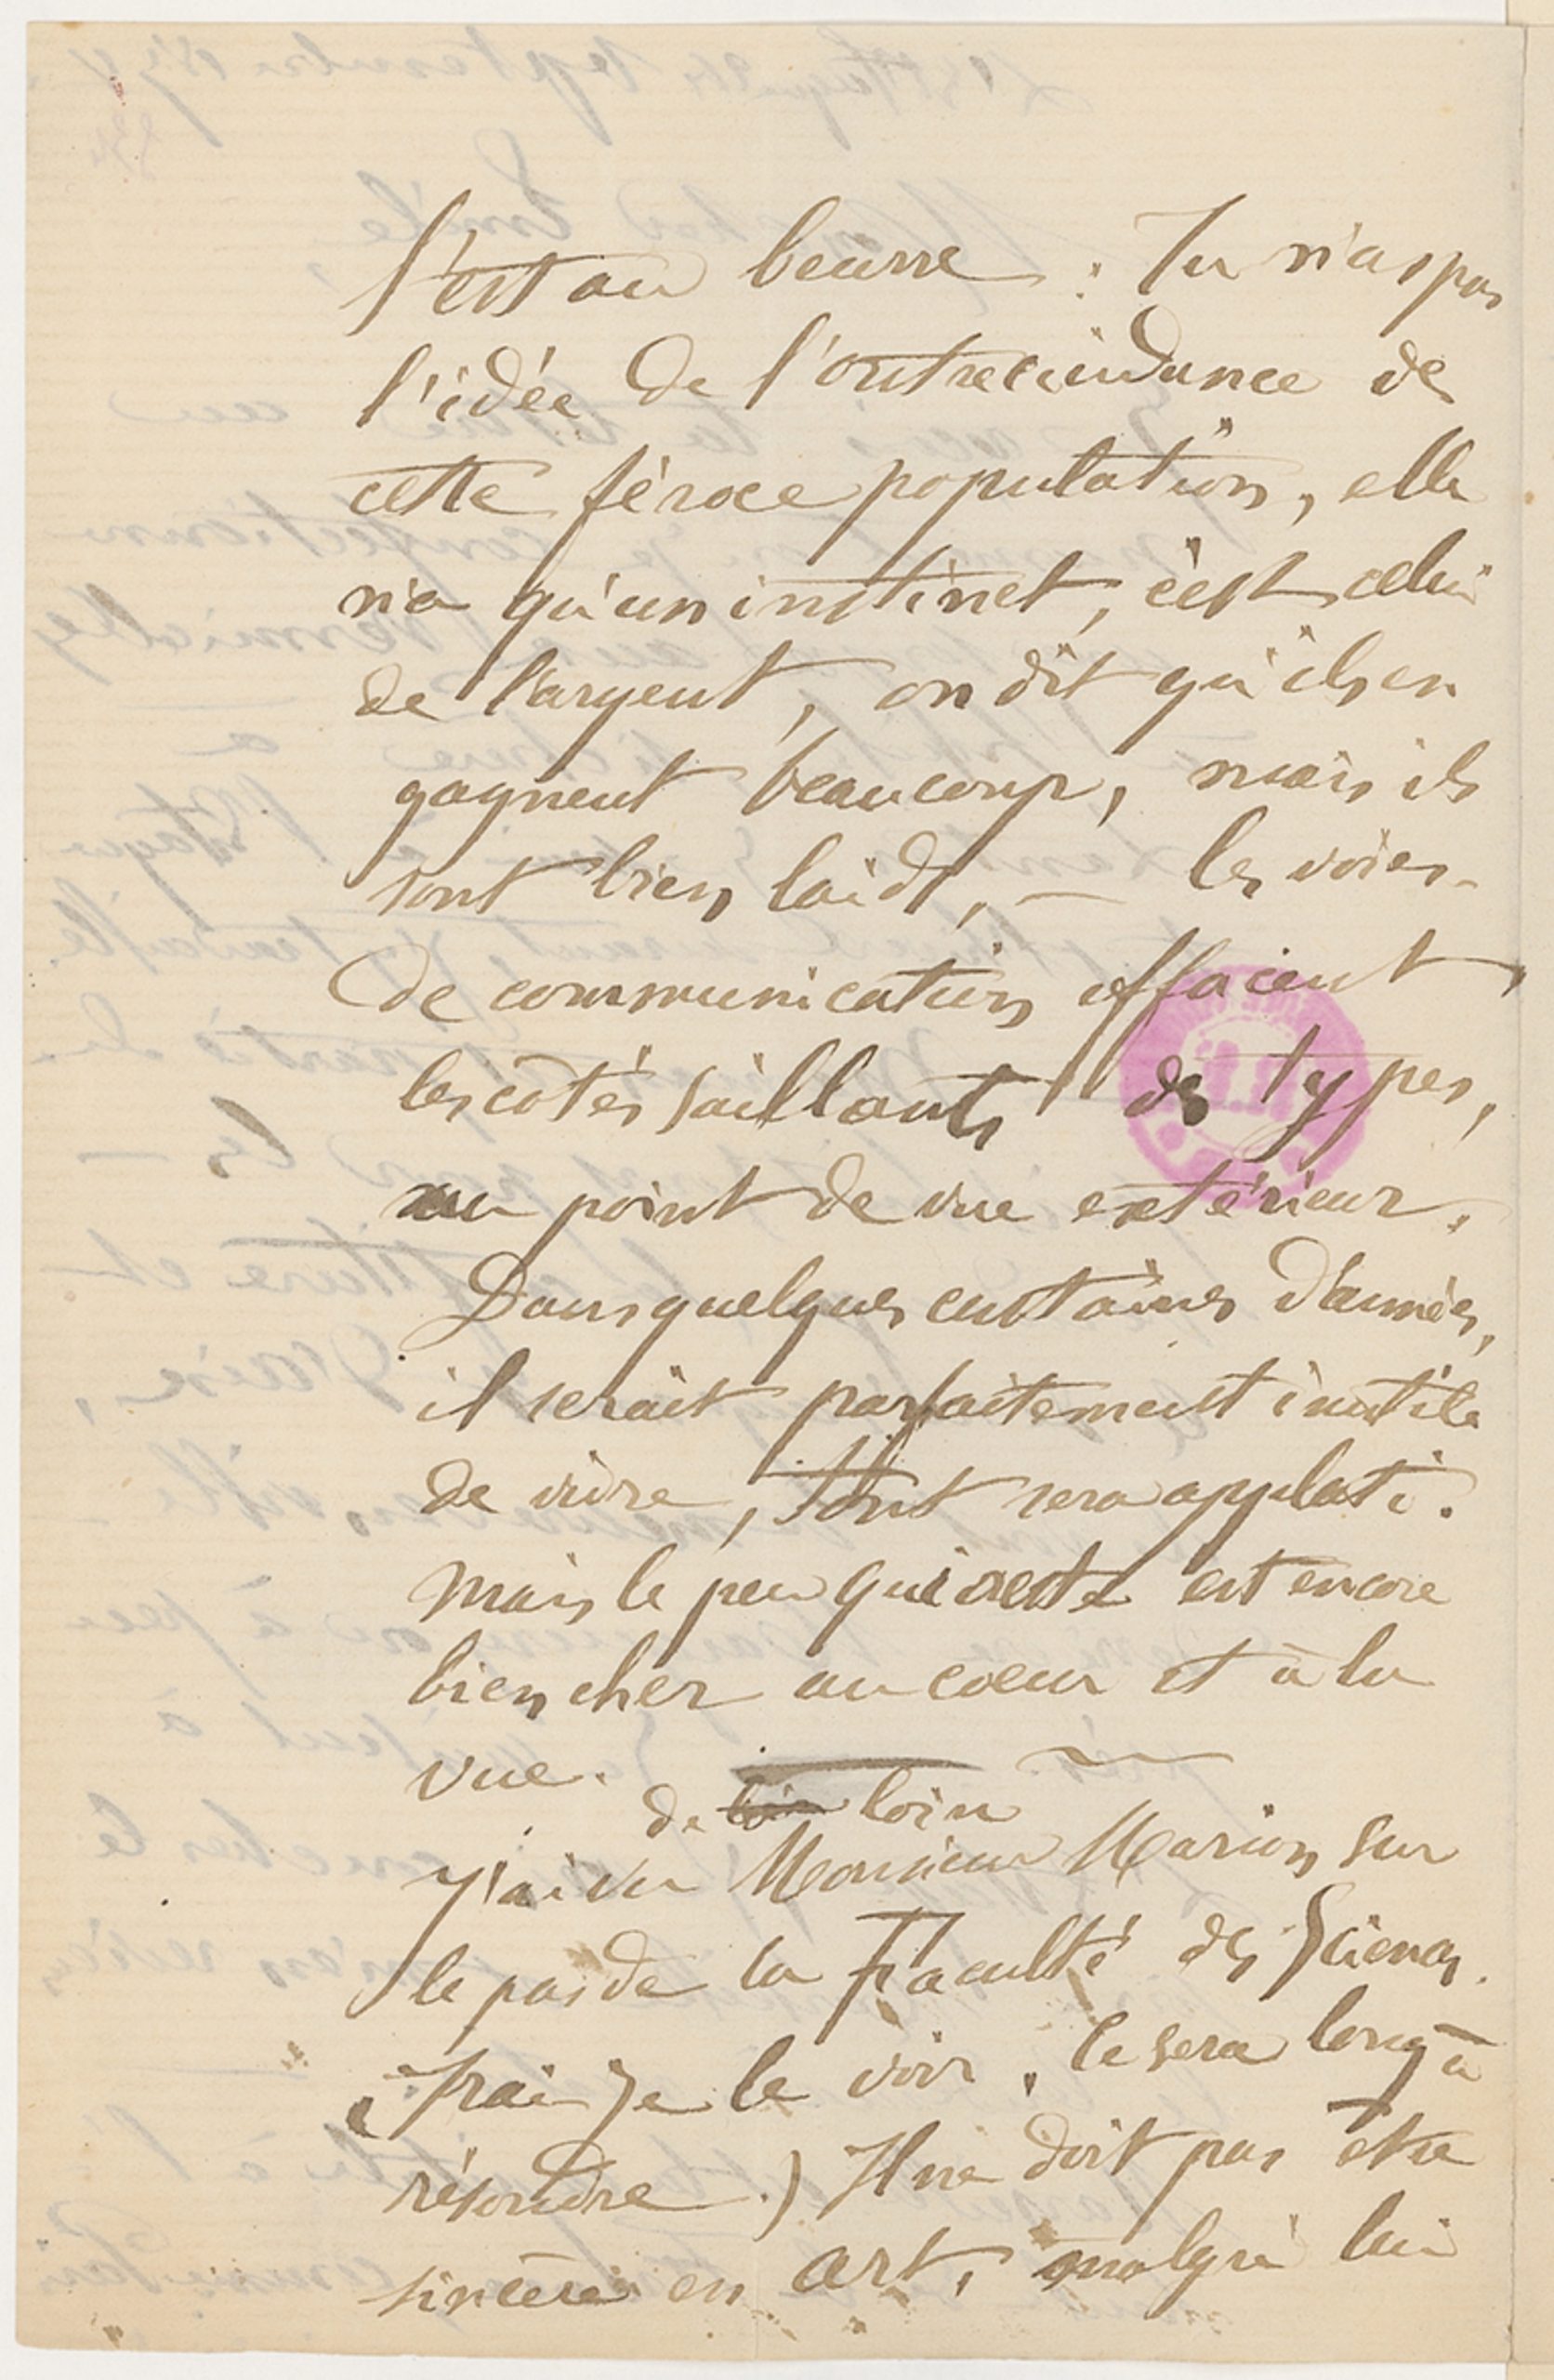 c'est au beurre. Tu n'as pas
l'idée de l'outrecuidance de
cette féroce population, elle
n'a qu'un instinct, c'est celui
de l'argent, on dit qu'ils en
gagnent beaucoup, mais ils
sont bien laids, — les voies
de communication effacent
les côtés saillants des types,
au point de vue extérieur.
Dans quelques centaines d'années,
il serait parfaitement inutile
de vivre, tout sera applati.
Mais le peu qui reste est encore
bien cher au coeur et à la
vue.
de loin
J'ai vu Monsieur Marion sur
le pas de la Faculté des Sciences.
(Irai je le voir, ce sera long à
résoudre.) Il ne doit pas être
sincère en art, malgré lui